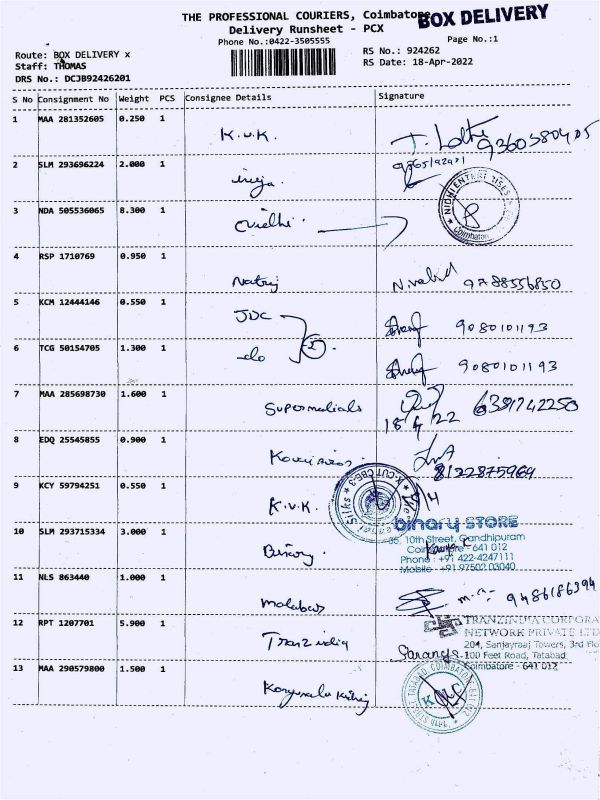 THE PROFESSIONAL COURIERS, Coimbatore
BOX DELIVERY
Delivery Runsheet - PCX
Phone No.:0422-3505555
Page No.:1
Route: BOX DELIVERY x
RS No.: 924262
Staff: THOMAS
RS Date: 18-Apr-2022
DRS No.: DCJB92426201
S No Consignment No Weight PCS Consignee Details Signature
1 MAA 281352605 0.250 1 K.V.K. 9360380405
2 SLM 293696224 2.000 1
3 NDA 505536065 8.300 1
NIDHI ENTERPRISES
Coimbatore
4 RSP 1710769 0.950 1 Natraj 9788556850
5 KCM 12444146 0.550 1 JDC 9080101193
6 TCG 50154705 1.300 1 do 2 9080101193
7 MAA 285698730 1.600 1 Supermaterials 6381742250
18/4/22
8 EDQ 25545855 0.900 1 8122875969
9 KCY 59794251 0.550 1 K.V.K.
Silks
K-CUT CBE-3
binary STORE
10th Street, Gandhipuram
Coimbatore - 641 012
Phone : +91 422-4247111
Mobile : +91 97502 03040
10 SLM 293715334 3.000 1 Binary
11 NLS 863440 1.000 1 malabar 9486186394
12 RPT 1207701 5.900 1 Tranzindia
TRANZINDIA CORPORA
NETWORK PRIVATE LTD
204, Sanjayraaj Towers, 3rd Flo
100 Feet Road, Tatabad
Coimbatore - 641 012
13 MAA 290579800 1.500 1
TATABAD, COIMBATORE